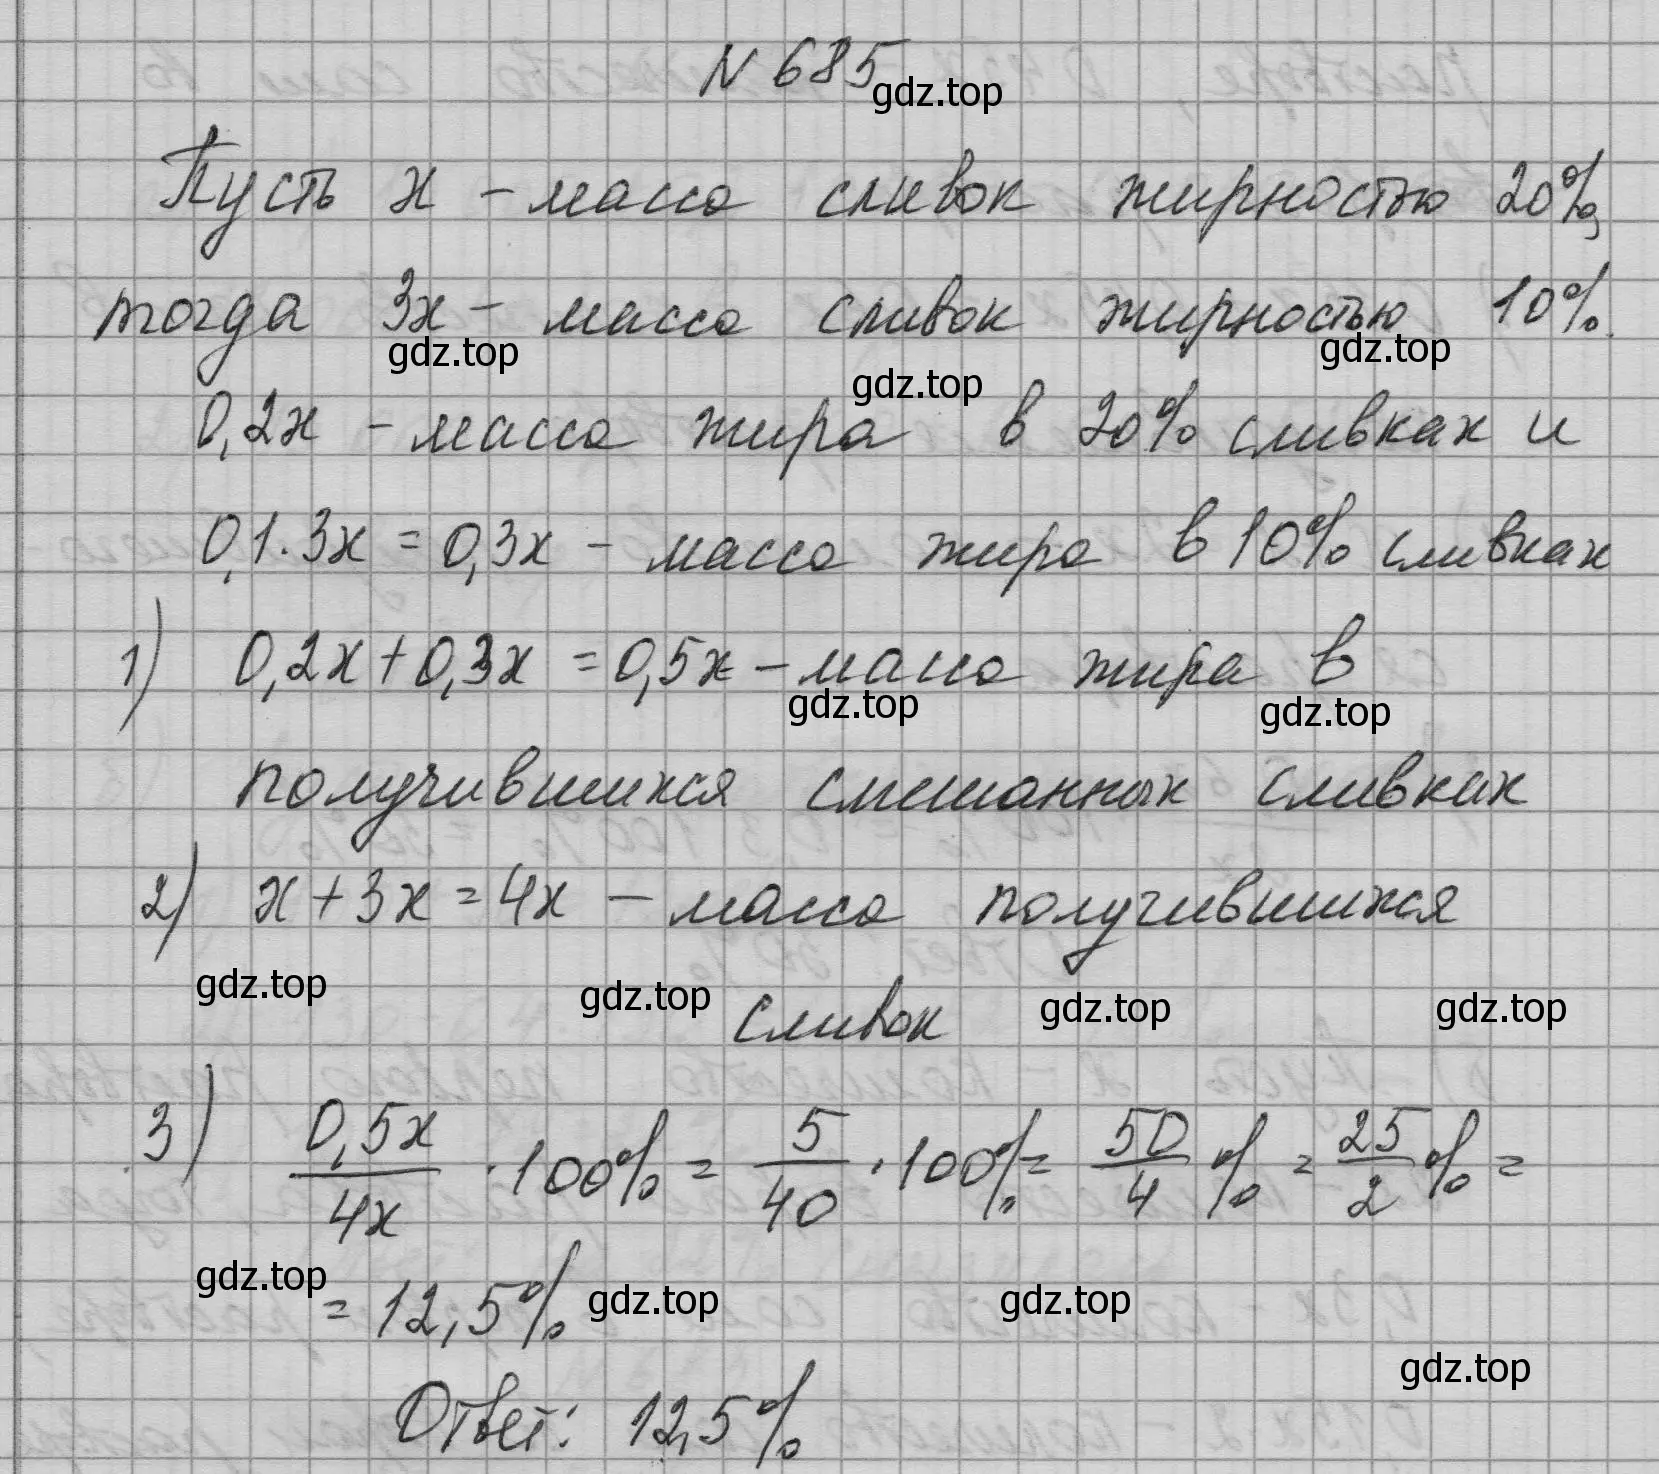 N 685
gdz.top
Пусть x – масса сливок жирностью 20%,
тогда 3x – масса сливок жирностью 10%.
gdz.top gdz.top gdz.top
0,2x – масса жира в 20% сливках и
0,1·3x = 0,3x – масса жира в 10% сливках
1) 0,2x + 0,3x = 0,5x – масса жира в
gdz.top gdz.top
получившихся смешанных сливках
2) x + 3x = 4x – масса получившихся
gdz.top gdz.top gdz.top gdz.top
сливок
3) 0,5x/4x · 100% = 5/40 · 100% = 50/4 % = 25/2 % =
gdz.top gdz.top gdz.top
= 12,5%
gdz.top
Ответ: 12,5%